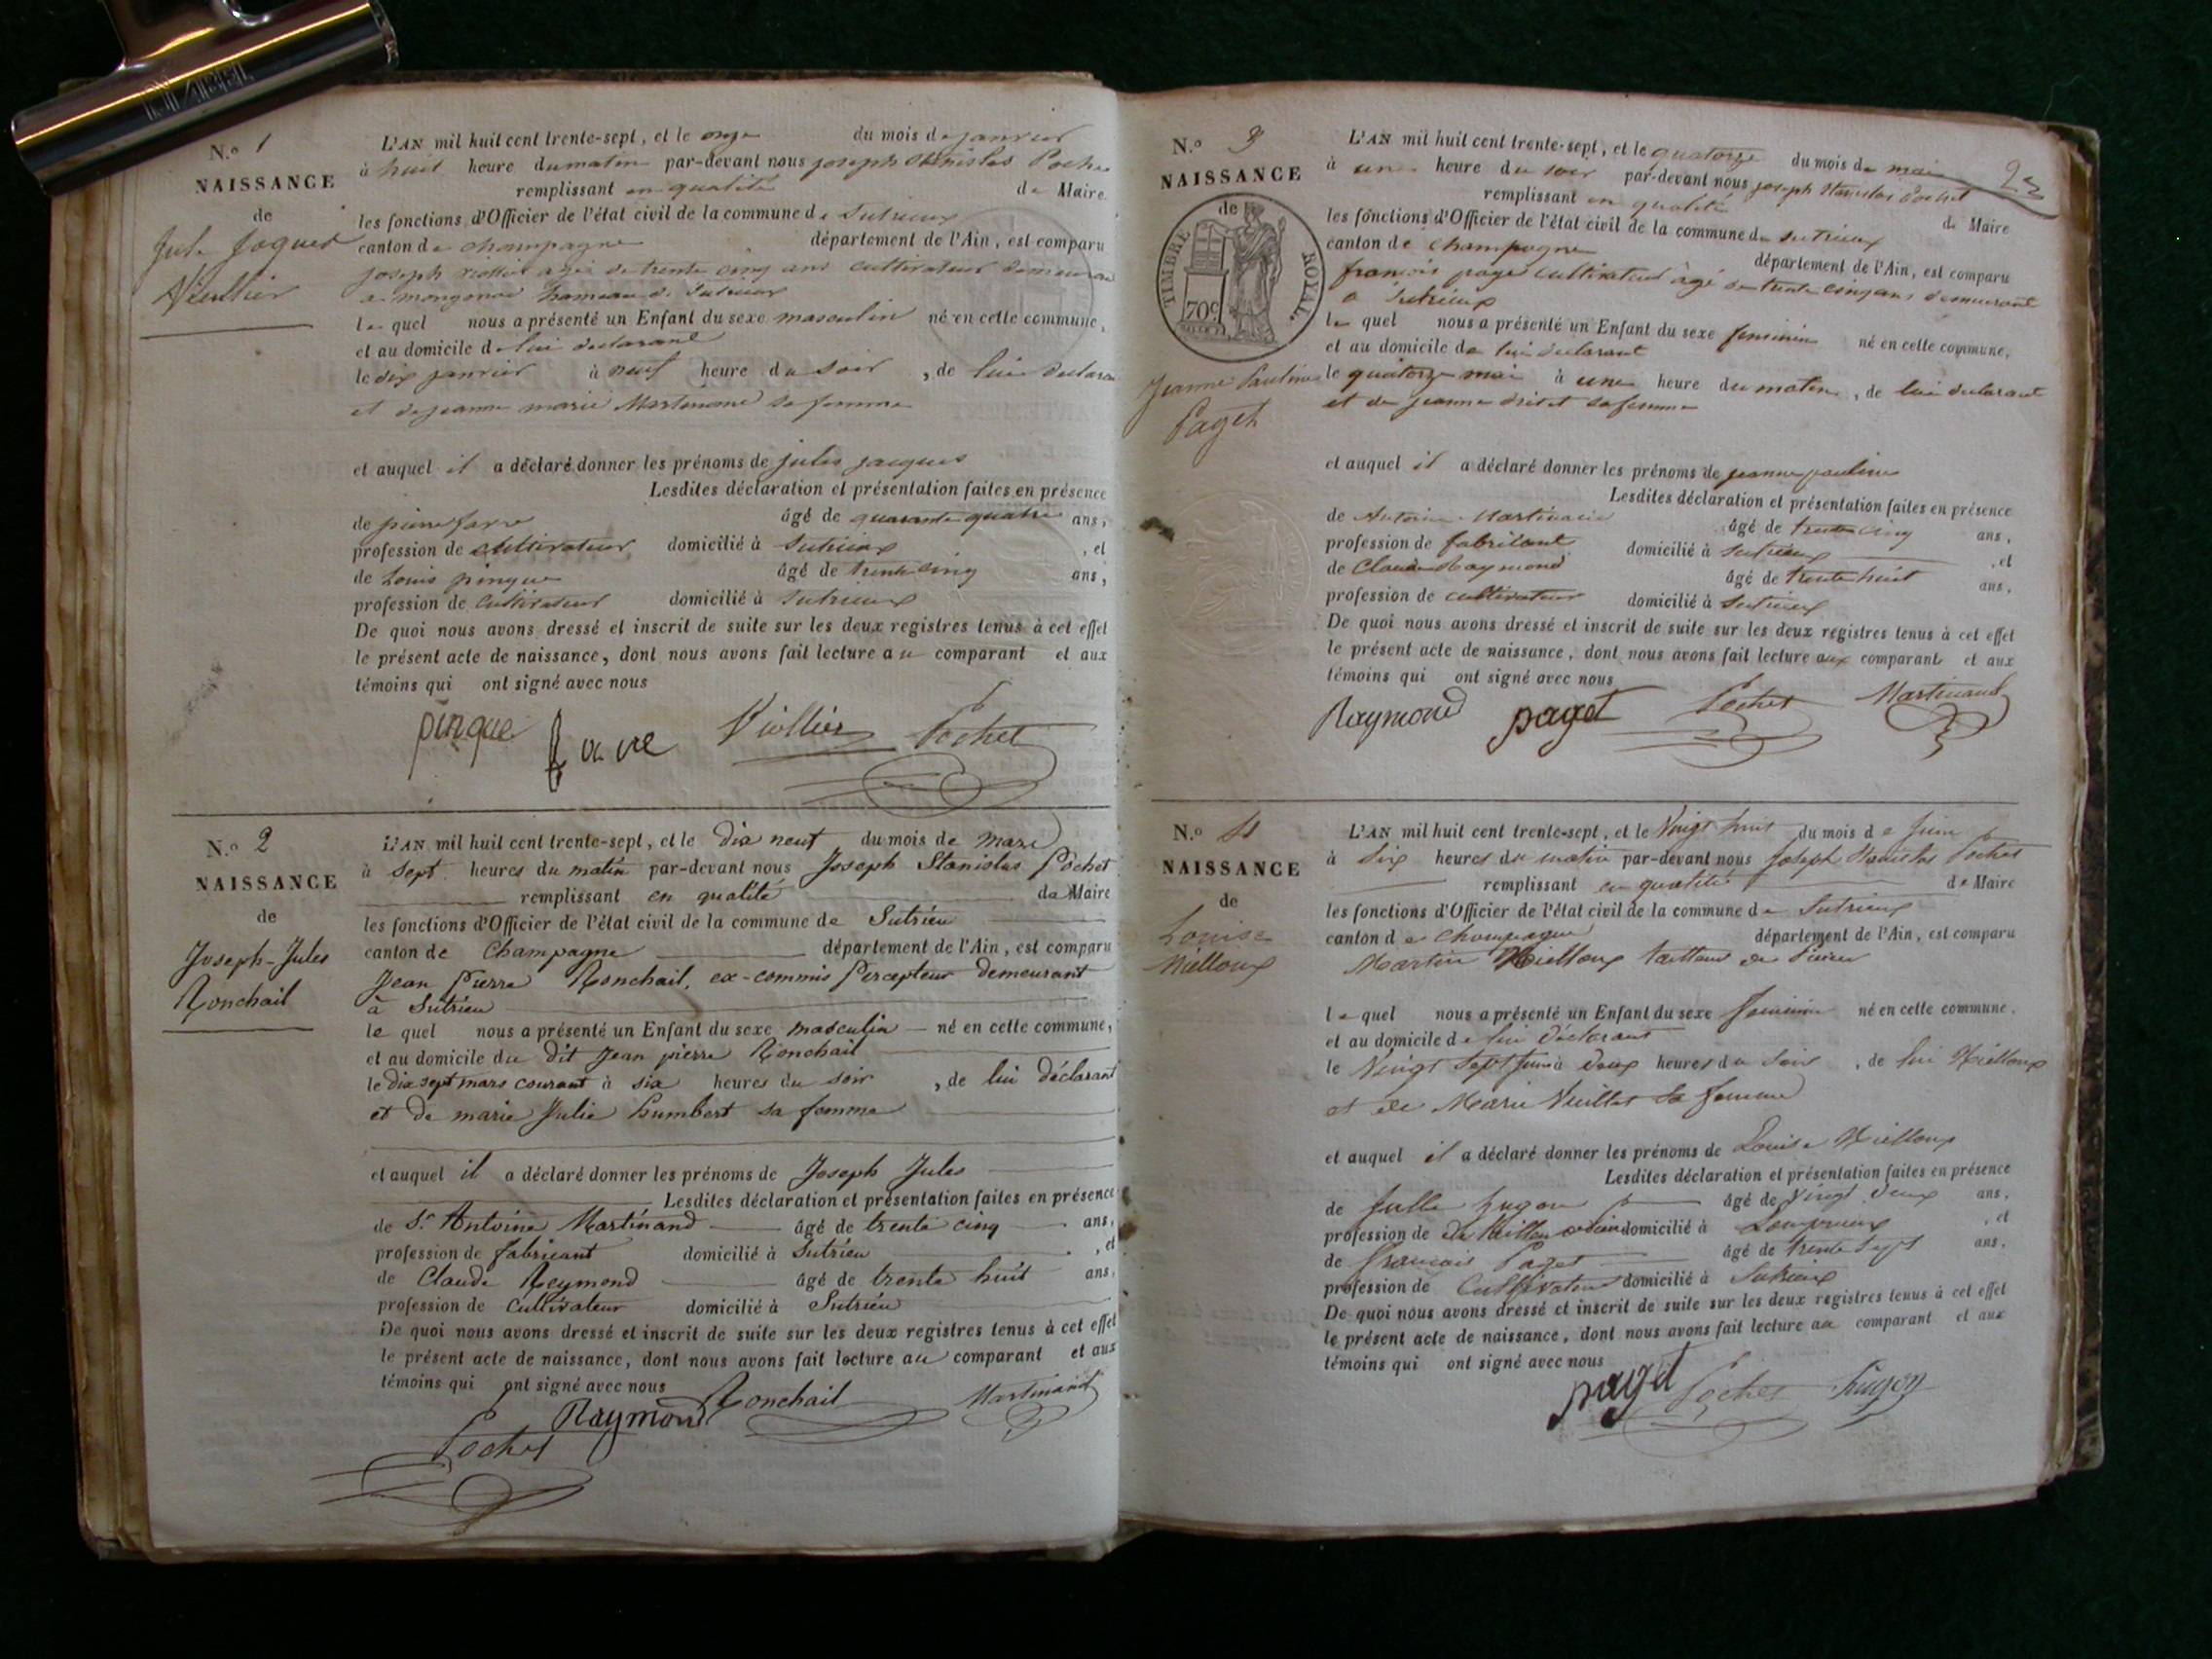 N.o 1
NAISSANCE
de
Jule Jaques
Viollier
L'AN mil huit cent trente-sept, et le onze du mois de janvier
à huit heure du matin par-devant nous joseph Stanislas Pochet
remplissant en qualité de Maire
les fonctions d'Officier de l'état civil de la commune de Sutrieux
canton de champagne département de l'Ain, est comparu
joseph viollier agé de trente cinq ans cultivateur demeurant
a hameau de Sutrieux
le quel nous a présenté un Enfant du sexe masculin né en cette commune,
et au domicile de lui declarant
le dix janvier à neuf heure du soir, de lui declarant
et de jeanne marie Martinand sa femme
et auquel il a déclaré donner les prénoms de jules jacques
Lesdites déclaration et présentation faites en présence
de pierre favre âgé de quarante quatre ans,
profession de cultivateur domicilié à Sutrieux, et
de Louis pinque âgé de trente cinq ans,
profession de cultivateur domicilié à Sutrieux
De quoi nous avons dressé et inscrit de suite sur les deux registres tenus à cet effet
le présent acte de naissance, dont nous avons fait lecture au comparant et aux
témoins qui ont signé avec nous
pinque favre Viollier Pochet
N.o 2
NAISSANCE
de
Joseph-Jules
Ronchail
L'AN mil huit cent trente-sept, et le dix neuf du mois de mars
à sept heures du matin par-devant nous Joseph Stanislas Pochet
remplissant en qualité de Maire
les fonctions d'Officier de l'état civil de la commune de Sutrieu
canton de Champagne département de l'Ain, est comparu
Jean Pierre Ronchail, ex-commis Percepteur demeurant
à Sutrieu
le quel nous a présenté un Enfant du sexe masculin né en cette commune,
et au domicile du dit Jean pierre Ronchail
le dix sept mars courant à six heures du soir, de lui déclarant
et de marie Julie humbert sa femme
et auquel il a déclaré donner les prénoms de Joseph Jules
Lesdites déclaration et présentation faites en présence
de Sr Antoine Martinand âgé de trente cinq ans,
profession de fabricant domicilié à Sutrieu, et
de Claude Reymond âgé de trente huit ans,
profession de cultivateur domicilié à Sutrieu
De quoi nous avons dressé et inscrit de suite sur les deux registres tenus à cet effet
le présent acte de naissance, dont nous avons fait lecture au comparant et aux
témoins qui ont signé avec nous
Raymond Ronchail Martinand
Pochet
22
N.o 3
NAISSANCE
de
TIMBRE ROYAL.
70c
Jeanne Pauline
Paget
L'AN mil huit cent trente-sept, et le quatorze du mois de mai
à une heure du soir par-devant nous joseph Stanislas Pochet
remplissant en qualité de Maire
les fonctions d'Officier de l'état civil de la commune de Sutrieux
canton de champagne département de l'Ain, est comparu
francois paget cultivateur âgé de trente cinq ans demeurant
a Sutrieux
le quel nous a présenté un Enfant du sexe feminin né en cette commune,
et au domicile de lui declarant
le quatorze mai à une heure du matin, de lui declarant
et de jeanne sa femme
et auquel il a déclaré donner les prénoms de jeanne pauline
Lesdites déclaration et présentation faites en présence
de Antoine Martinand âgé de trente cinq ans,
profession de fabricant domicilié à Sutrieux, et
de Claude Raymond âgé de trente huit ans,
profession de cultivateur domicilié à Sutrieux
De quoi nous avons dressé et inscrit de suite sur les deux registres tenus à cet effet
le présent acte de naissance, dont nous avons fait lecture aux comparant et aux
témoins qui ont signé avec nous
Raymond paget Pochet Martinand
N.o 4
NAISSANCE
de
Louise
Nielloux
L'AN mil huit cent trente-sept, et le Vingt huit du mois de Juin
à Six heures du matin par-devant nous Joseph Stanislas Pochet
remplissant en qualité de Maire
les fonctions d'Officier de l'état civil de la commune de Sutrieux
canton de Champagne département de l'Ain, est comparu
Martin Nielloux tailleur de Pierres
le quel nous a présenté un Enfant du sexe feminin né en cette commune,
et au domicile de lui Déclarant
le Vingt Sept Juin à Deux heures du Soir, de lui Nielloux
et de Marie Vuillet Sa femme
et auquel il a déclaré donner les prénoms de Louise Nielloux
Lesdites déclaration et présentation faites en présence
de hugon âgé de Vingt Deux ans,
profession de domicilié à, et
de francois Paget âgé de trente Sept ans,
profession de Cultivateur domicilié à Sutrieux
De quoi nous avons dressé et inscrit de suite sur les deux registres tenus à cet effet
le présent acte de naissance, dont nous avons fait lecture au comparant et aux
témoins qui ont signé avec nous
paget Pochet hugon